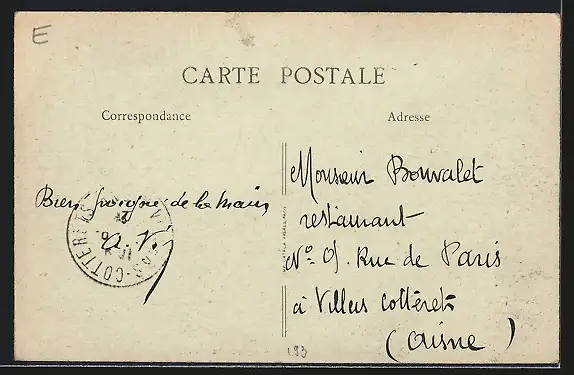 E
CARTE POSTALE
Correspondance
Adresse
Monsieur Bouvalet
restaurant
Nº Rue de Paris
à Villers Cotterets
(Aisne)
Bien de la main
A. V.
COTTERETS
193